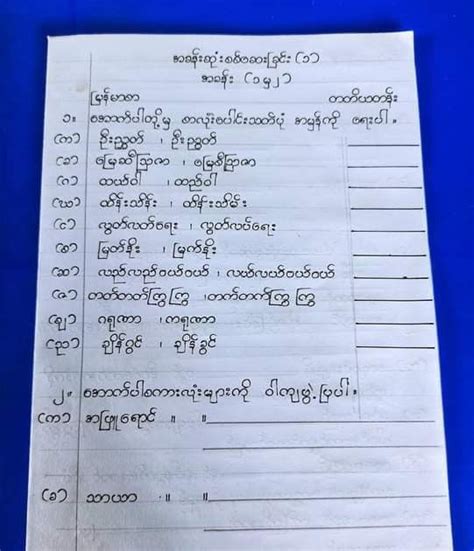 အခန်းဆုံးစစ်ဆေးခြင်း (၁)
အခန်း (၁ မှ ၂)
မြန်မာစာ တတိယတန်း
၁။ အောက်ပါတို့မှ စာလုံးပေါင်းသတ်ပုံ အမှန်ကို ရေးပါ။
(က) ဦးညွှတ် ၊ ဦးညွတ်
(ခ) မြေဆီသြဇာ ၊ မြေဩဇာ
(ဂ) ထယ်ဝါ ၊ ထည်ဝါ
(ဃ) ထိန်းသိန်း ၊ ထိန်းသိမ်း
(င) လွတ်လတ်ရေး ၊ လွတ်လပ်ရေး
(စ) မြတ်နိုး ၊ မြက်နိုး
(ဆ) လည်လည်ဝယ်ဝယ် ၊ လယ်လယ်ဝယ်ဝယ်
(ဇ) တတ်တတ်ကြွကြွ ၊ တက်တက်ကြွကြွ
(ဈ) ဂရုဏာ ၊ ကရုဏာ
(ည) ချိန်ခွင် ၊ ချိန်ခွင်
၂။ အောက်ပါစကားလုံးများကို ဝါကျဖွဲ့ပြပါ။
(က) အဖြူရောင် ။ ။
(ခ) သာယာ ။ ။